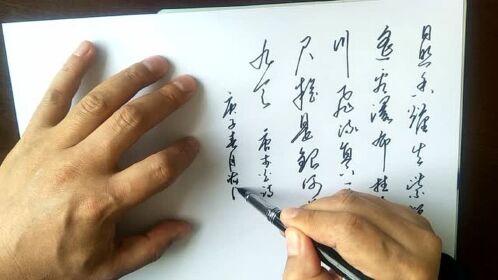 日照香炉生紫
遥看瀑布挂
川飞流直下
尺疑是银河
九天 唐李白诗
庚子春月